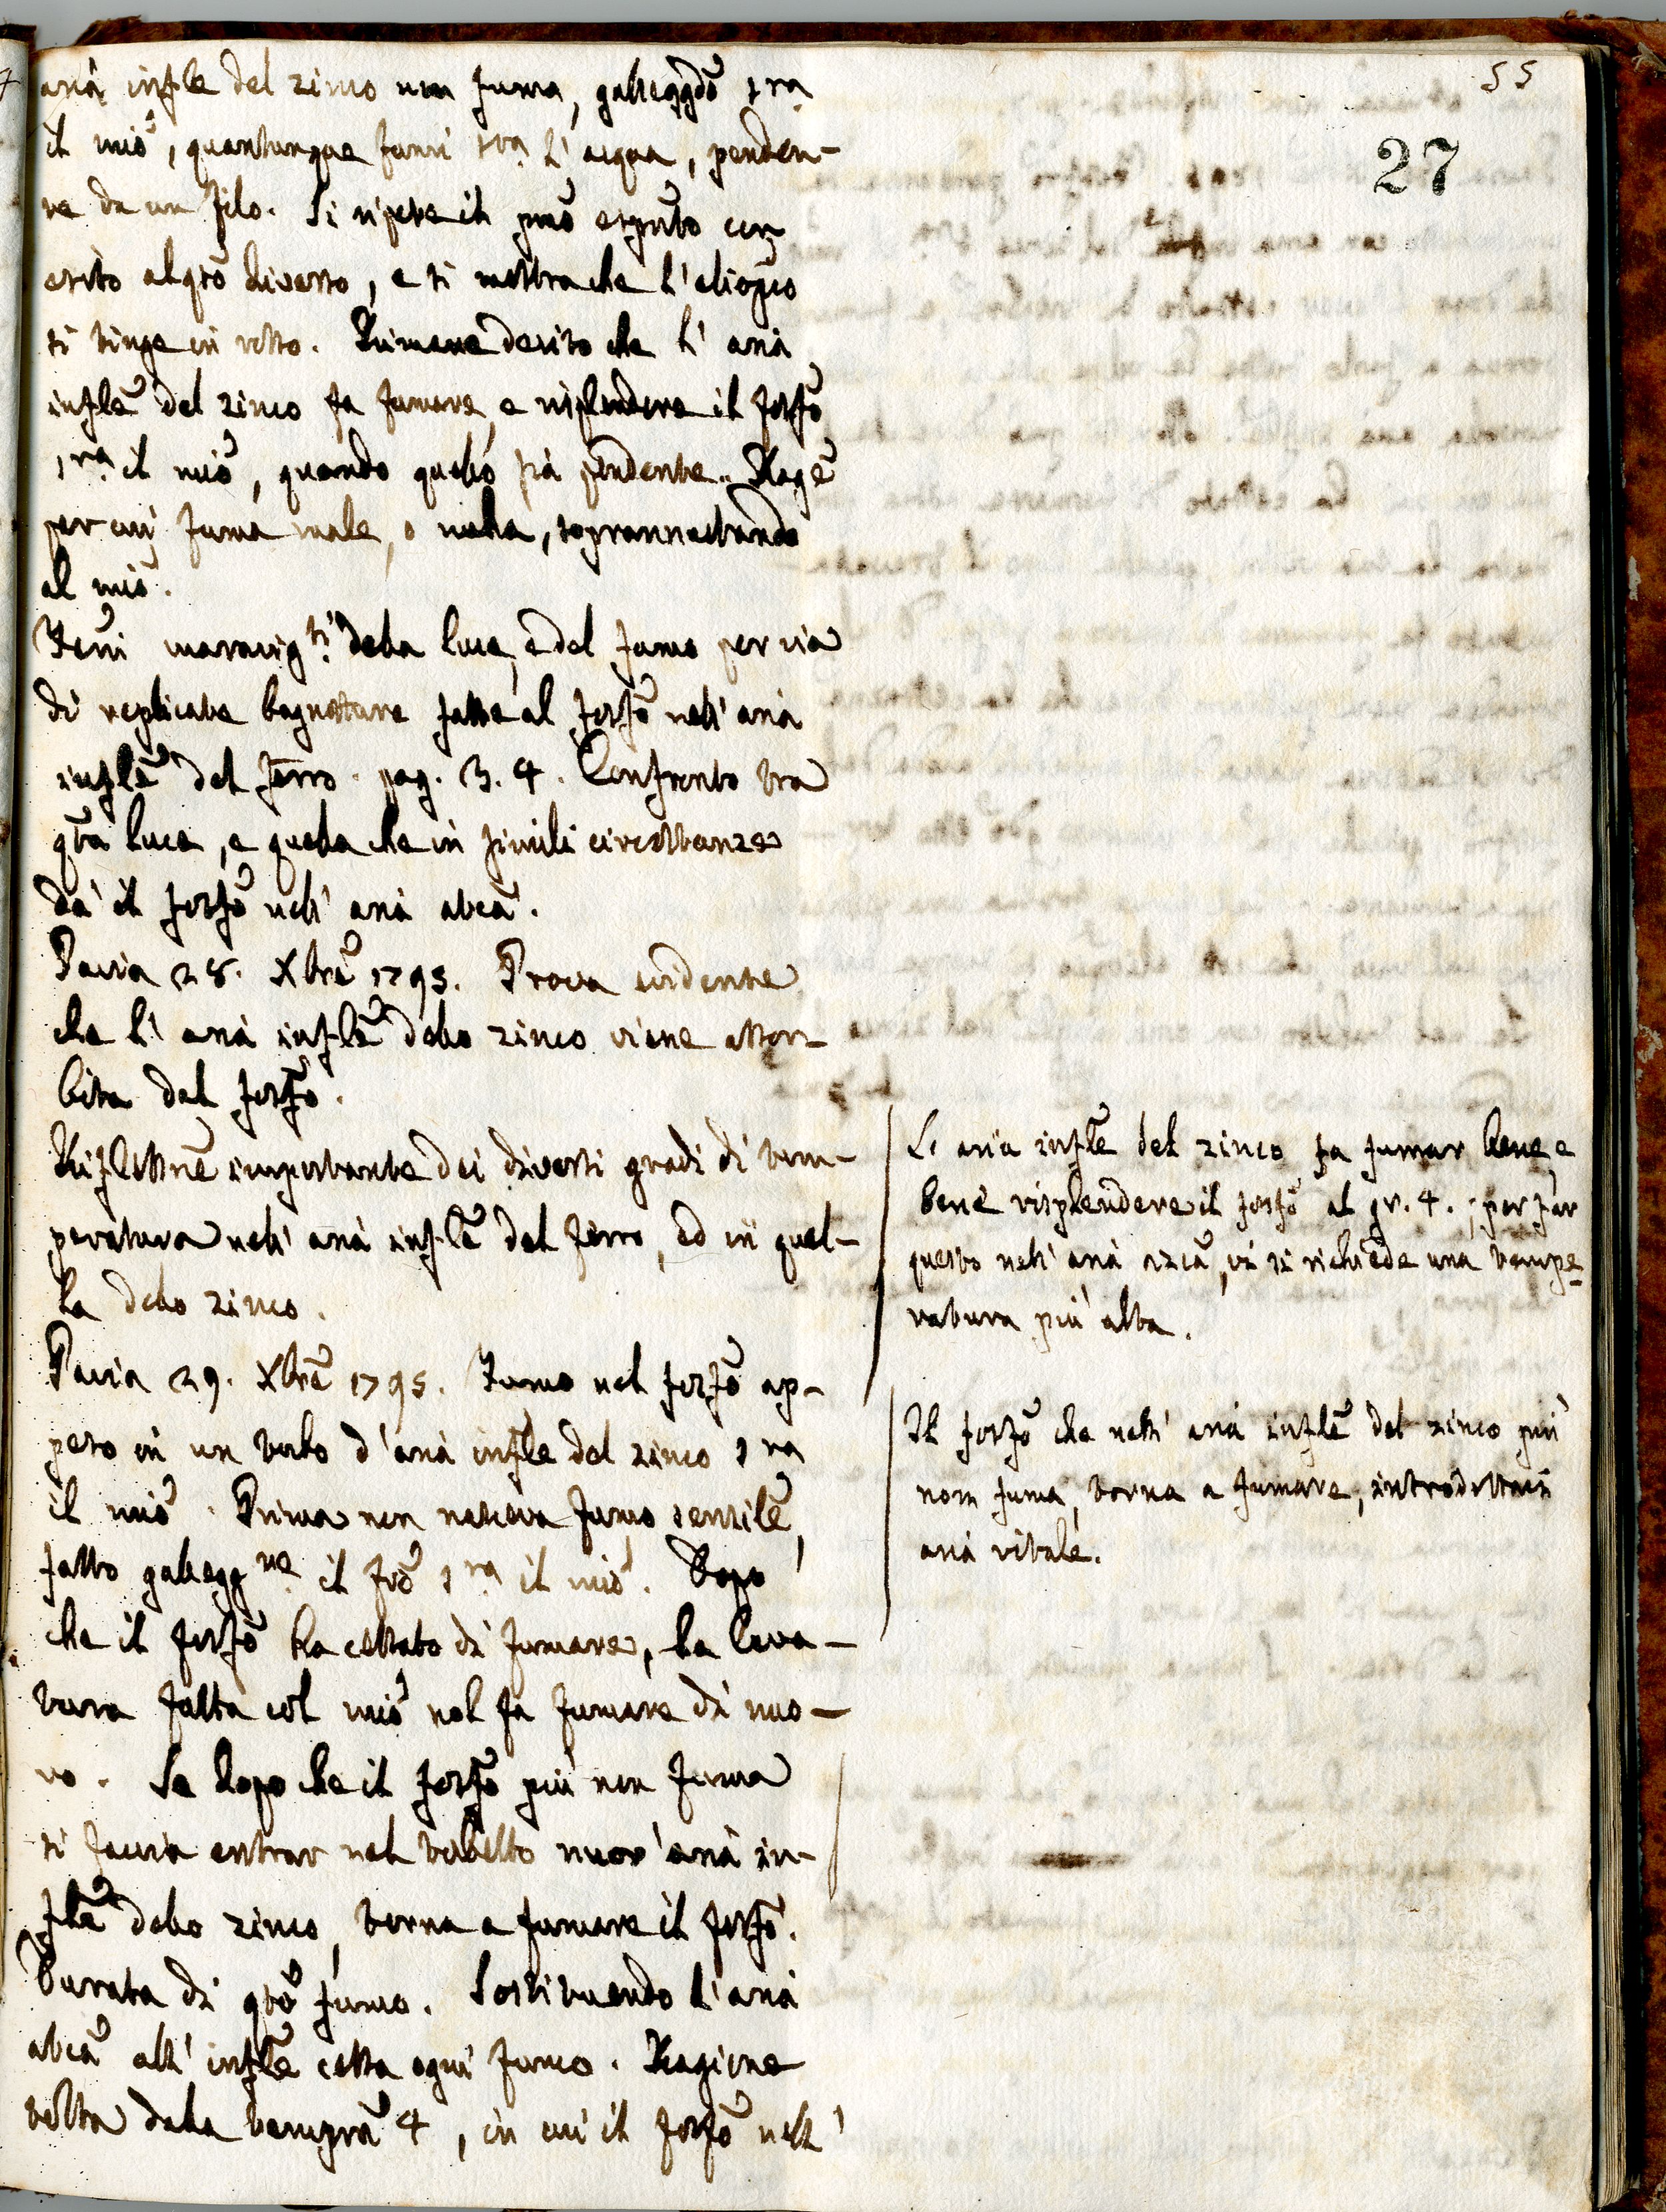 55
27
aria infle del zinco non fuma, galleggdo sra
il mio, quantunque fumi sra l'acqua, penden-
te da un filo. Si ripete il pmo espmto con
esito alqto diverso, e si mostra che l'eliopio
si tinge in rosso. Rimane deciso che l'aria
infle del zinco fa fumare, e risplendere il fosfo
sra il mio, quando quello sia pendente. Rage
per cui fuma male, o nulla, soprannuotando
al mio.
Feni maravigsi della luce, e del fumo per via
di replicate bagnature fatte al fosfo nell'aria
infle del ferro. pag. 3. 4. Confronto tra
qta luce, e quella che in simili circostanze
dà il fosfo nell'aria atca.
Pavia 28. Xbre 1795. Prova evidente
che l'aria infle dello zinco viene assor-
bita dal fosfo.
Riflessne importante dei diversi gradi di tem-
peratura nell'aria infle del ferro, ed in quel-
la dello zinco.
Pavia 29. Xbre 1795. Fumo nel fosfo ap-
peso in un tubo d'aria infle del zinco sra
il mio. Prima non nasceva fumo sensile,
fatto galleggne il fro sra il mio. Dopo
che il fosfo ha cessato di fumare, la leva-
tura fatta col mio nol fa fumare di nuo-
vo. Se dopo che il fosfo più non fuma
si faccia entrar nel tubetto nuov'aria in-
fle dello zinco, torna a fumare il fosfo.
Durata di qto fumo. Sostituendo l'aria
atca all'infle cessa ogni fumo. Ragione
tolta dalla tempra 4, in cui il fosfo nell'
L'aria infle del zinco fa fumar bene e
bene risplendere il fosfo al gr. 4.; per far
questo nell'aria azca, vi si richiede una tempe-
ratura più alta.
Il fosfo che nell'aria infle del zinco più
non fuma, torna a fumare, introdottavi
aria vitale.